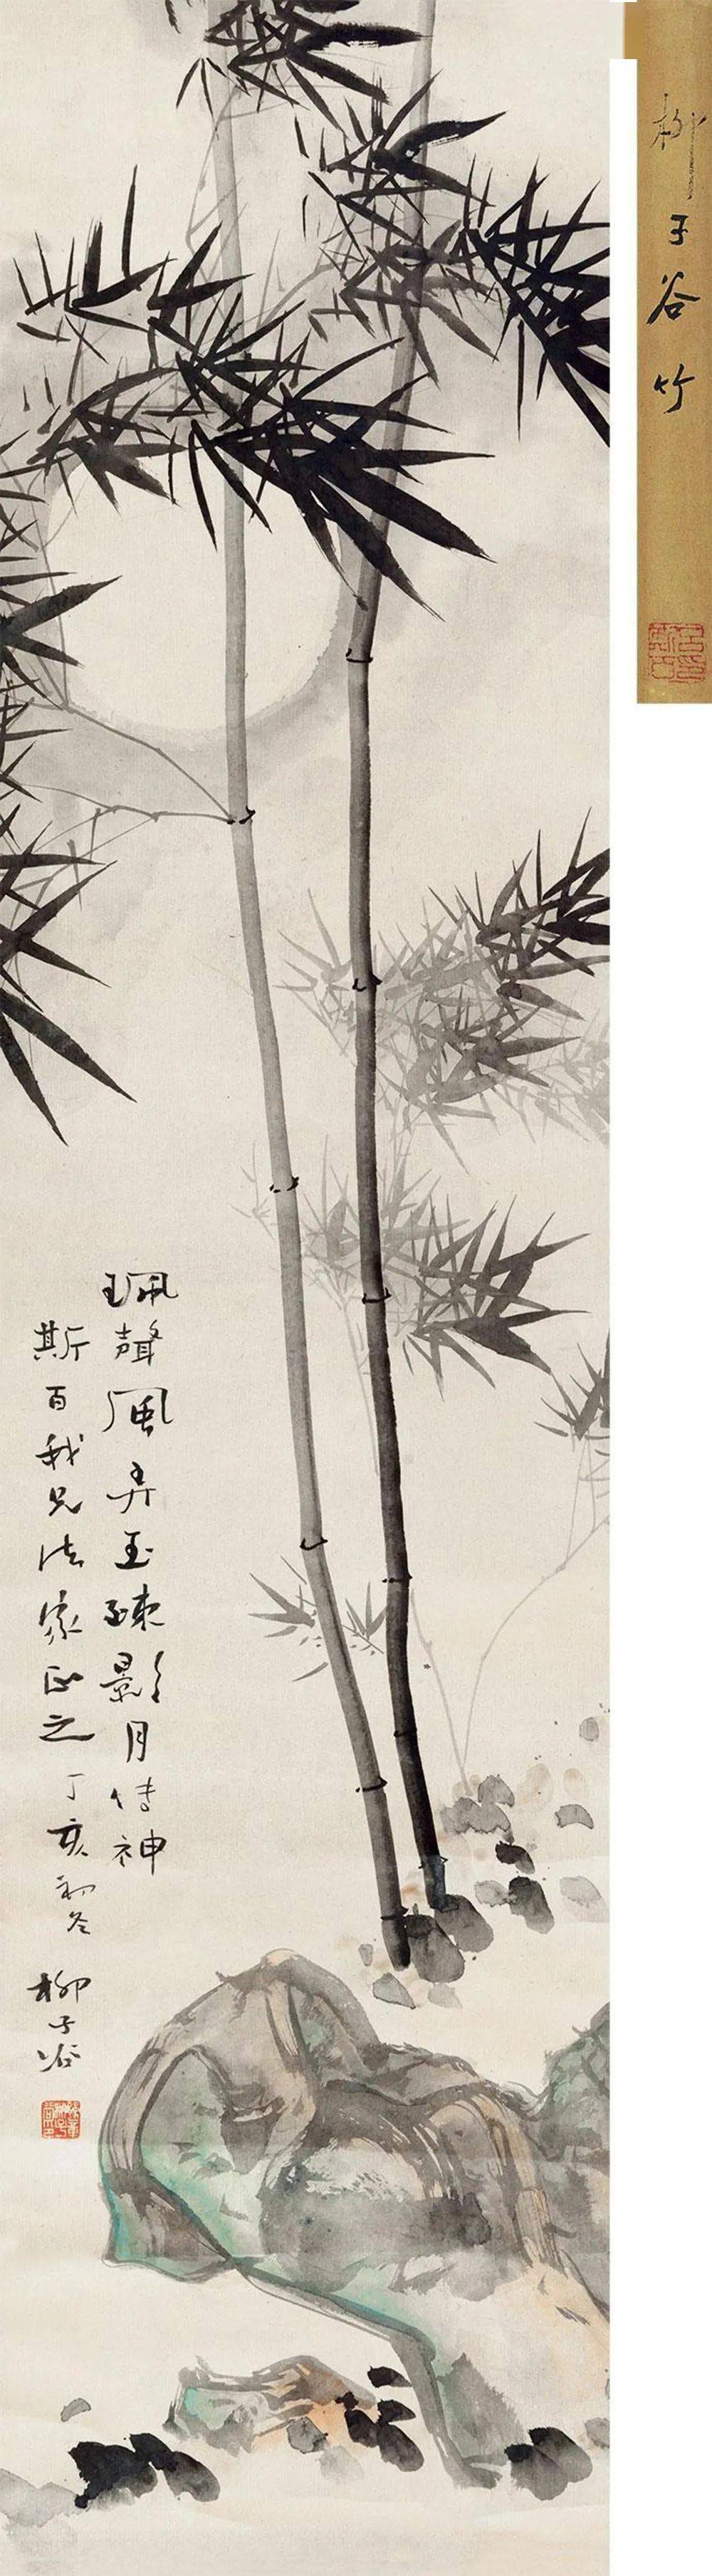 柳子谷竹
珮聲風弄玉疎影月傳神
斯百我兄法家正之丁亥初冬
柳子谷